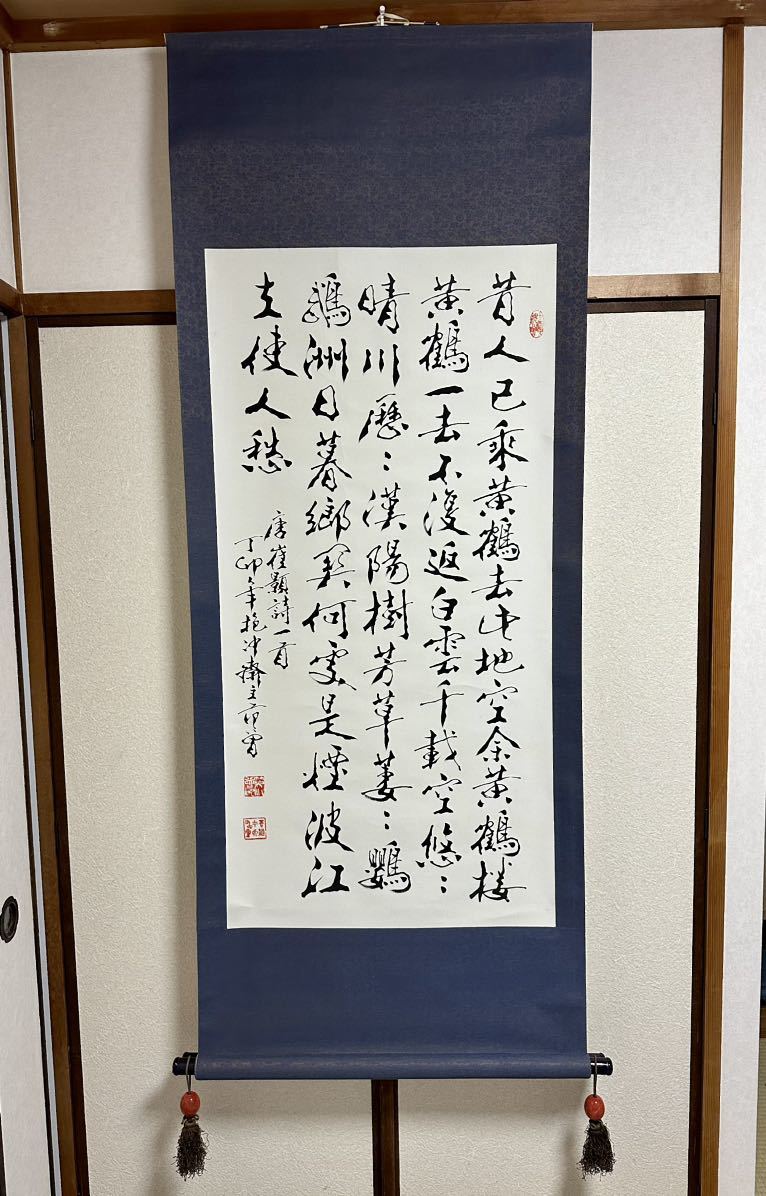 昔人已乘黄鶴去此地空余黄鶴楼
黄鶴一去不復返白雲千載空悠：
晴川歷：漢陽樹芳草萋：鸚
鵡洲日暮鄉关何處是煙波江
上使人愁
唐崔顥詩一首
丁卯年抱冲齋主范曾